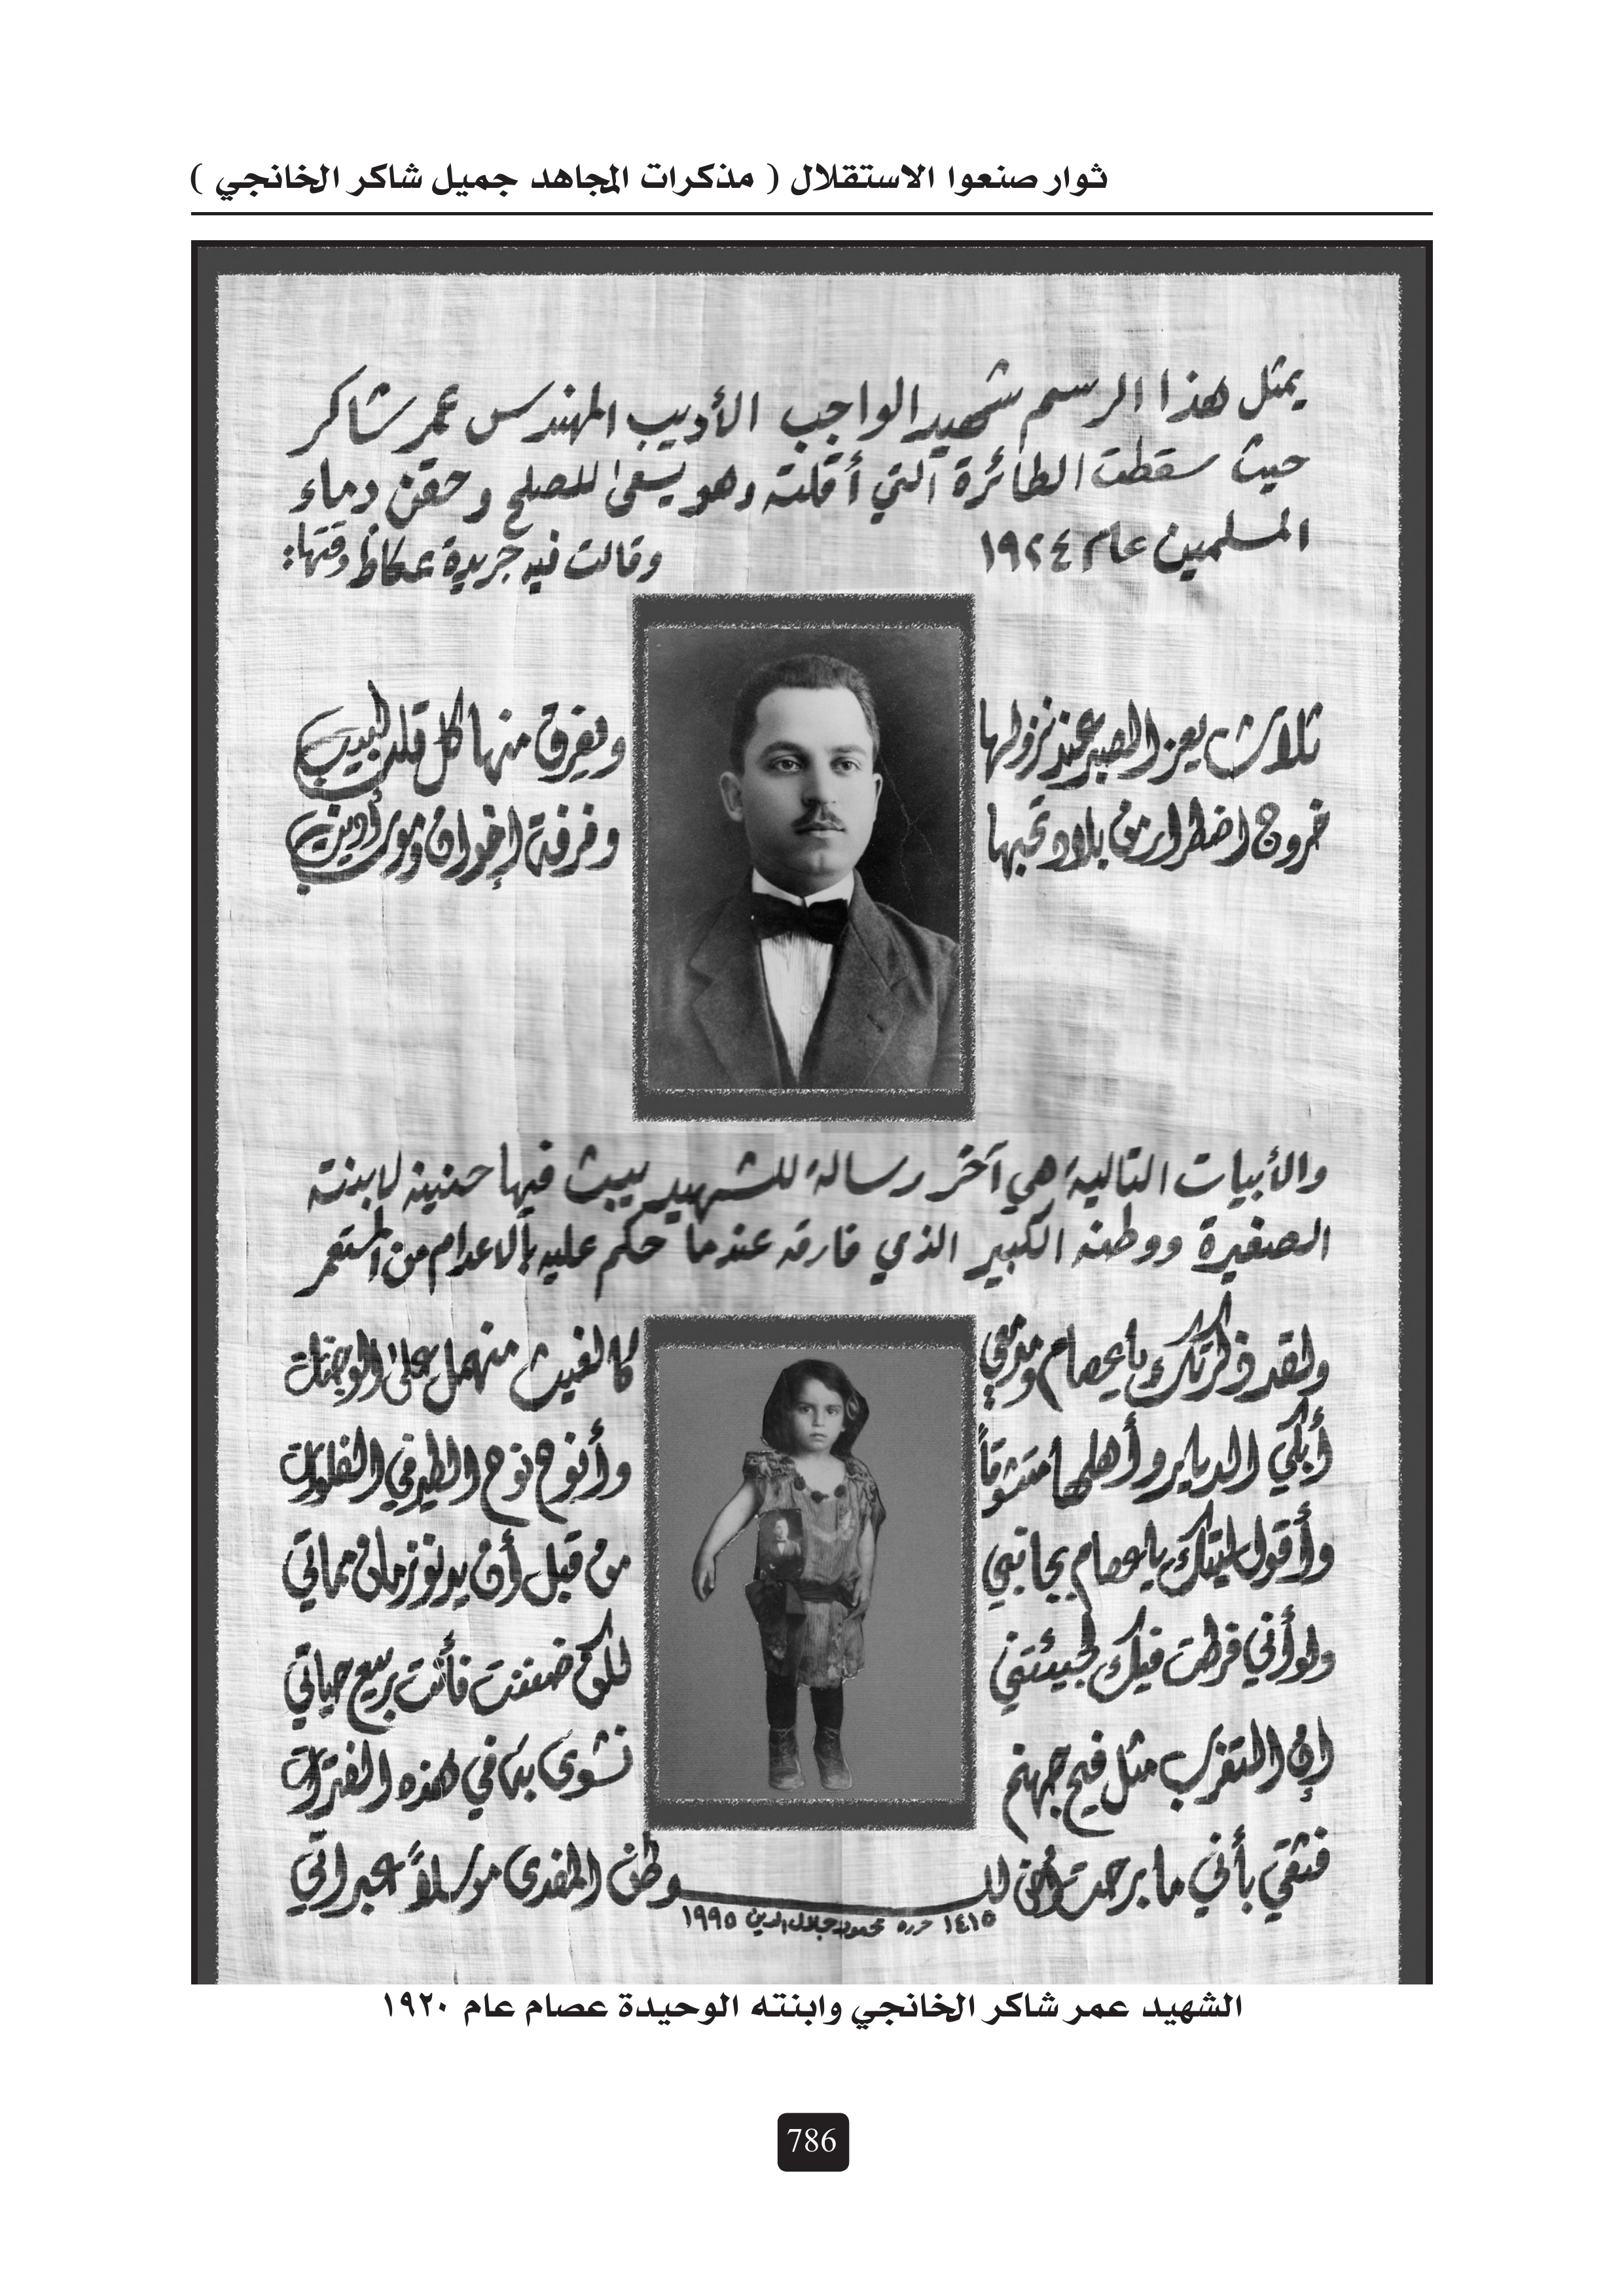 ثوار صنعوا الاستقلال ( مذكرات المجاهد جميل شاكر الخانجي )
يمثل هذا الرسم شهيد الواجب الأديب المهندس عمر شاكر
حيث سقطت الطائرة التي أقلته وهو يسعى للصلح وحقن دماء
المسلمين عام ١٩٢٤ وقالت فيه جريدة عكاظ وقتها:
ثلاث يعز الصبر عند نزولها ويفرق منها كل قلب لبيب
خروج اضطرار من بلاد تحبها وفرقة إخوان وموت أديب
والأبيات التالية هي آخر رسالة للشهيد يبث فيها حنينه لابنته
الصغيرة ووطنه الكبير الذي فارقه عندما حكم عليه بالاعدام من المستعمر
ولقد ذكرتك يا عصام ومدمعي كالغيث منهمل على الوجنات
أبكي الديار وأهلها متشوقاً وأنوح نوح الطير في الفلوات
وأقول ليتك يا عصام بجانبي من قبل أن يدنو زمان مماتي
ولو أني فرطت فيك لجيئتني فأنت ربيع حياتي
إن التغرب مثل فيح جهنم نشوى بها في هذه الفترات
فثقي بأني ما برحت أخف للـــوطن المفدى مرسلاً عبراتي
١٤١٥ حرره محمود جلال الدين ١٩٩٥
الشهيد عمر شاكر الخانجي وابنته الوحيدة عصام عام ١٩٢٠
786